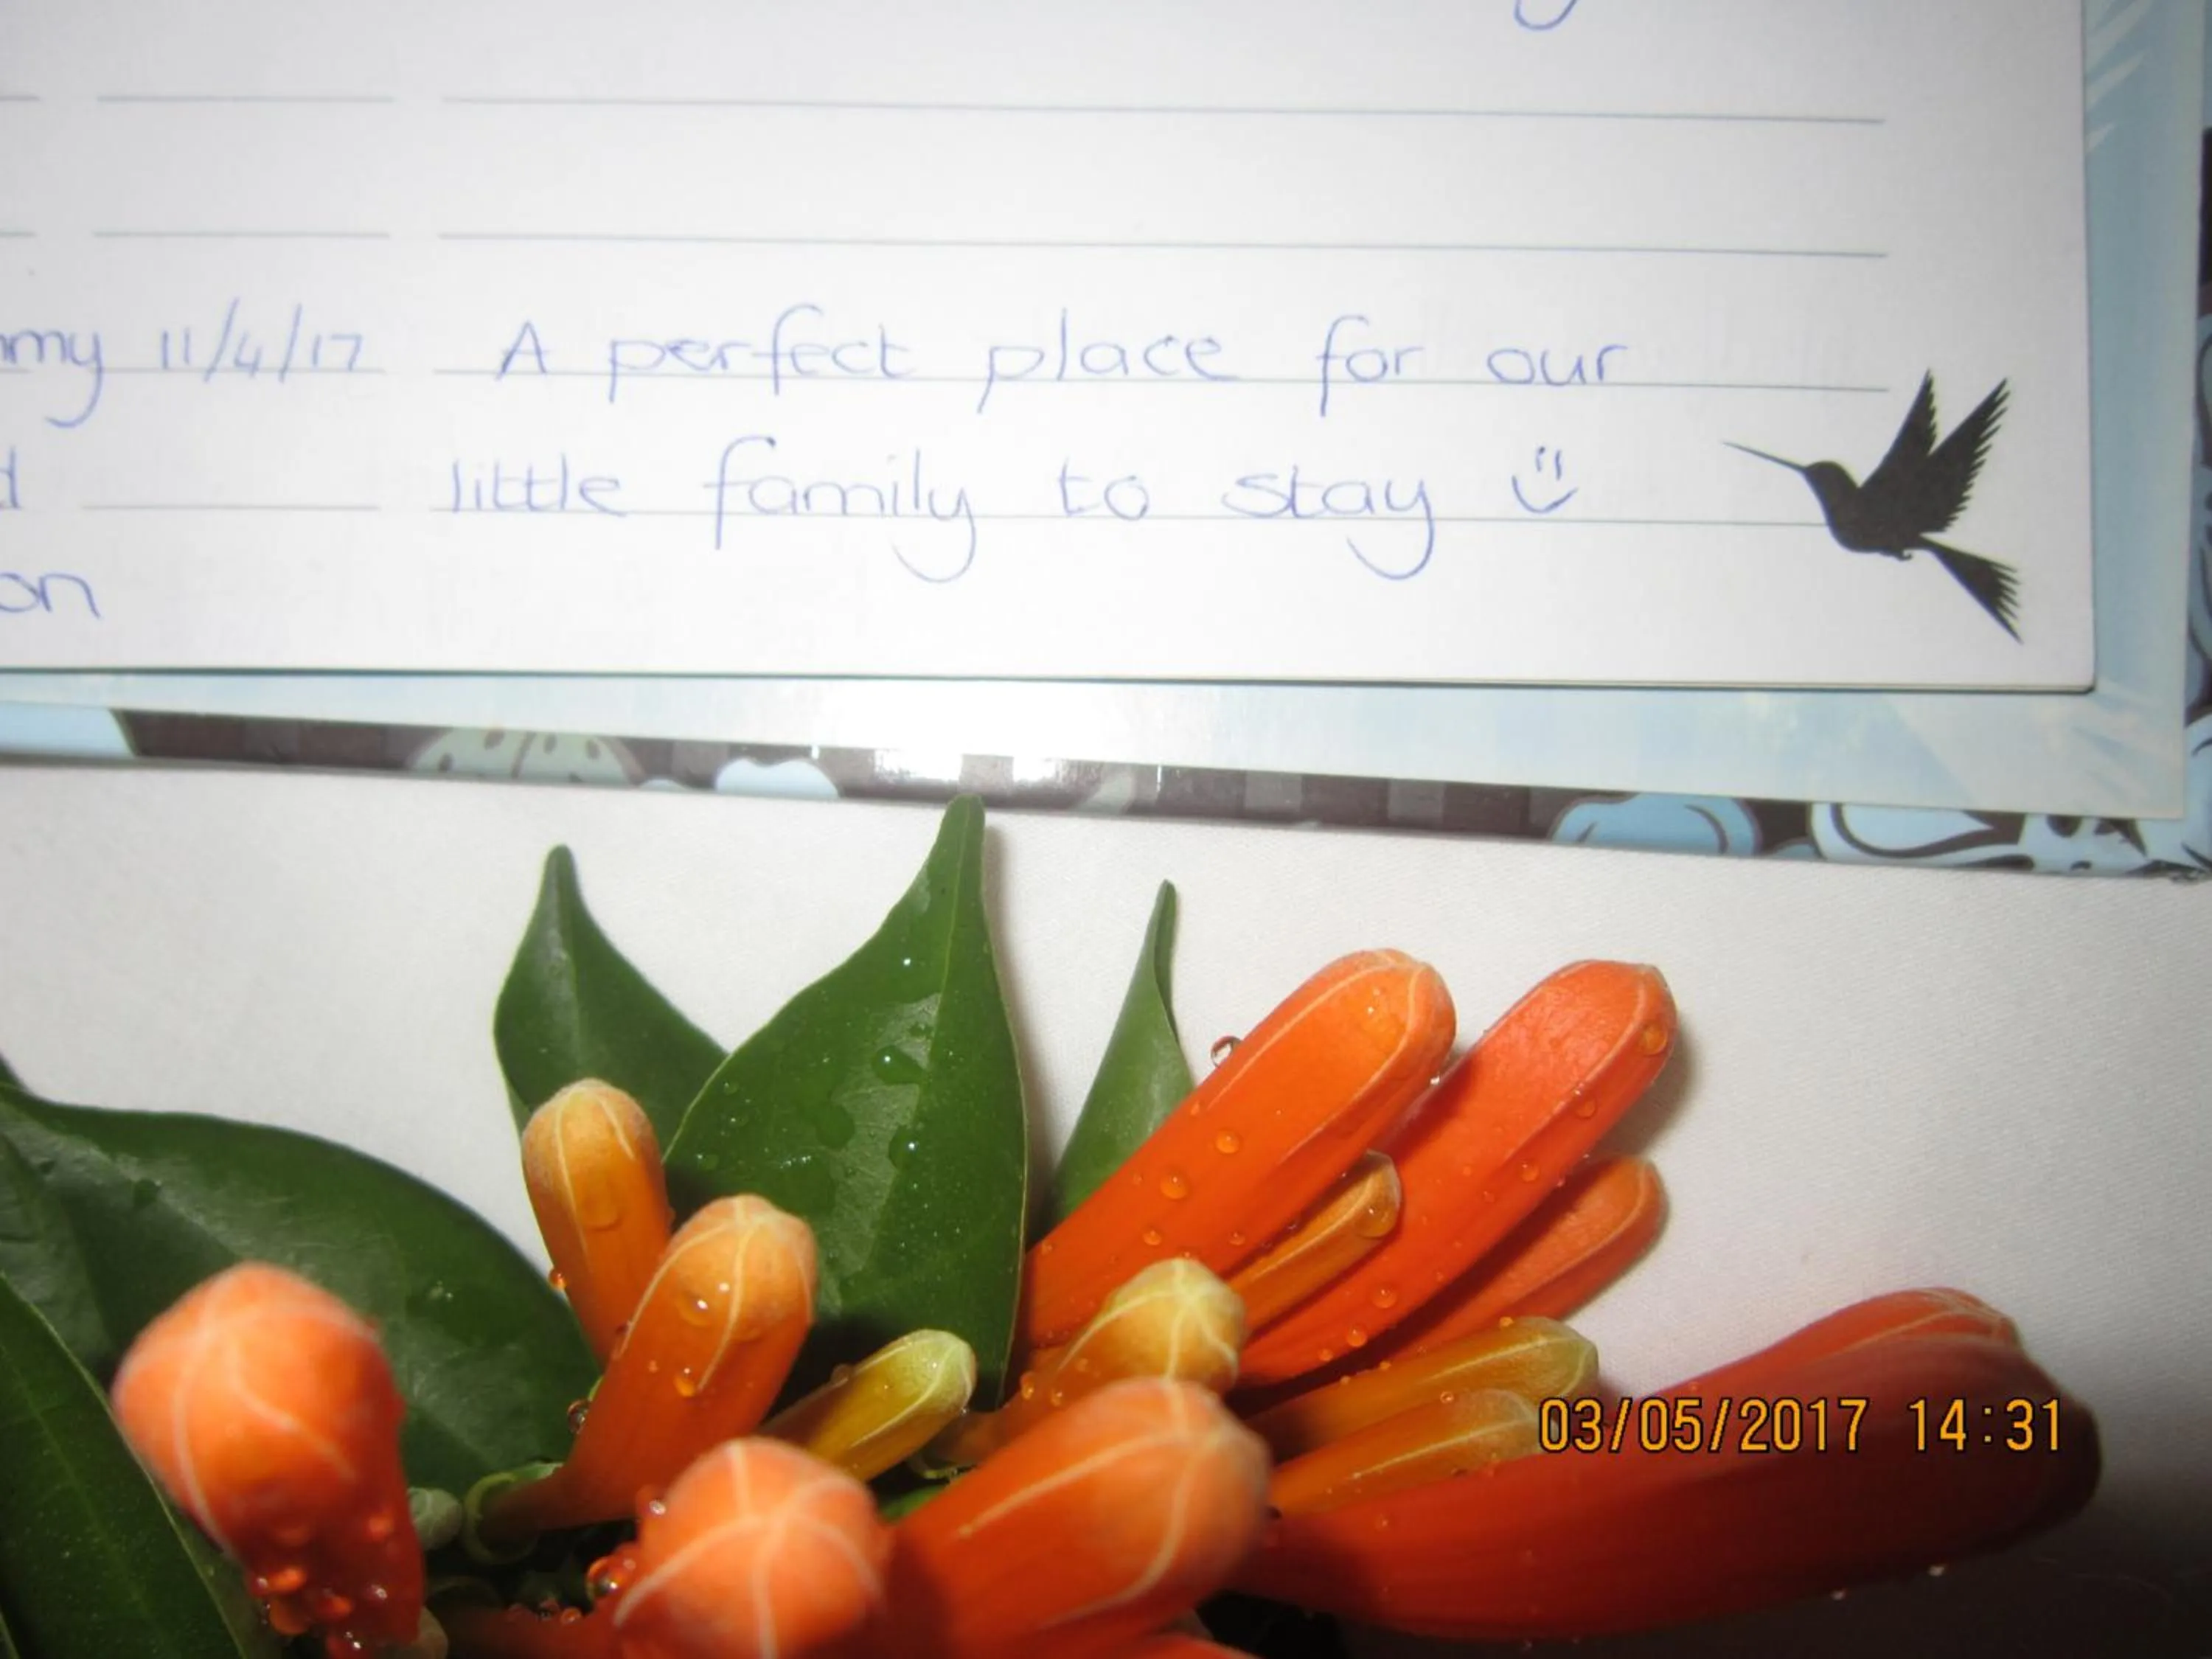 11/4/17 A perfect place for our
little family to stay
03/05/2017 14:31